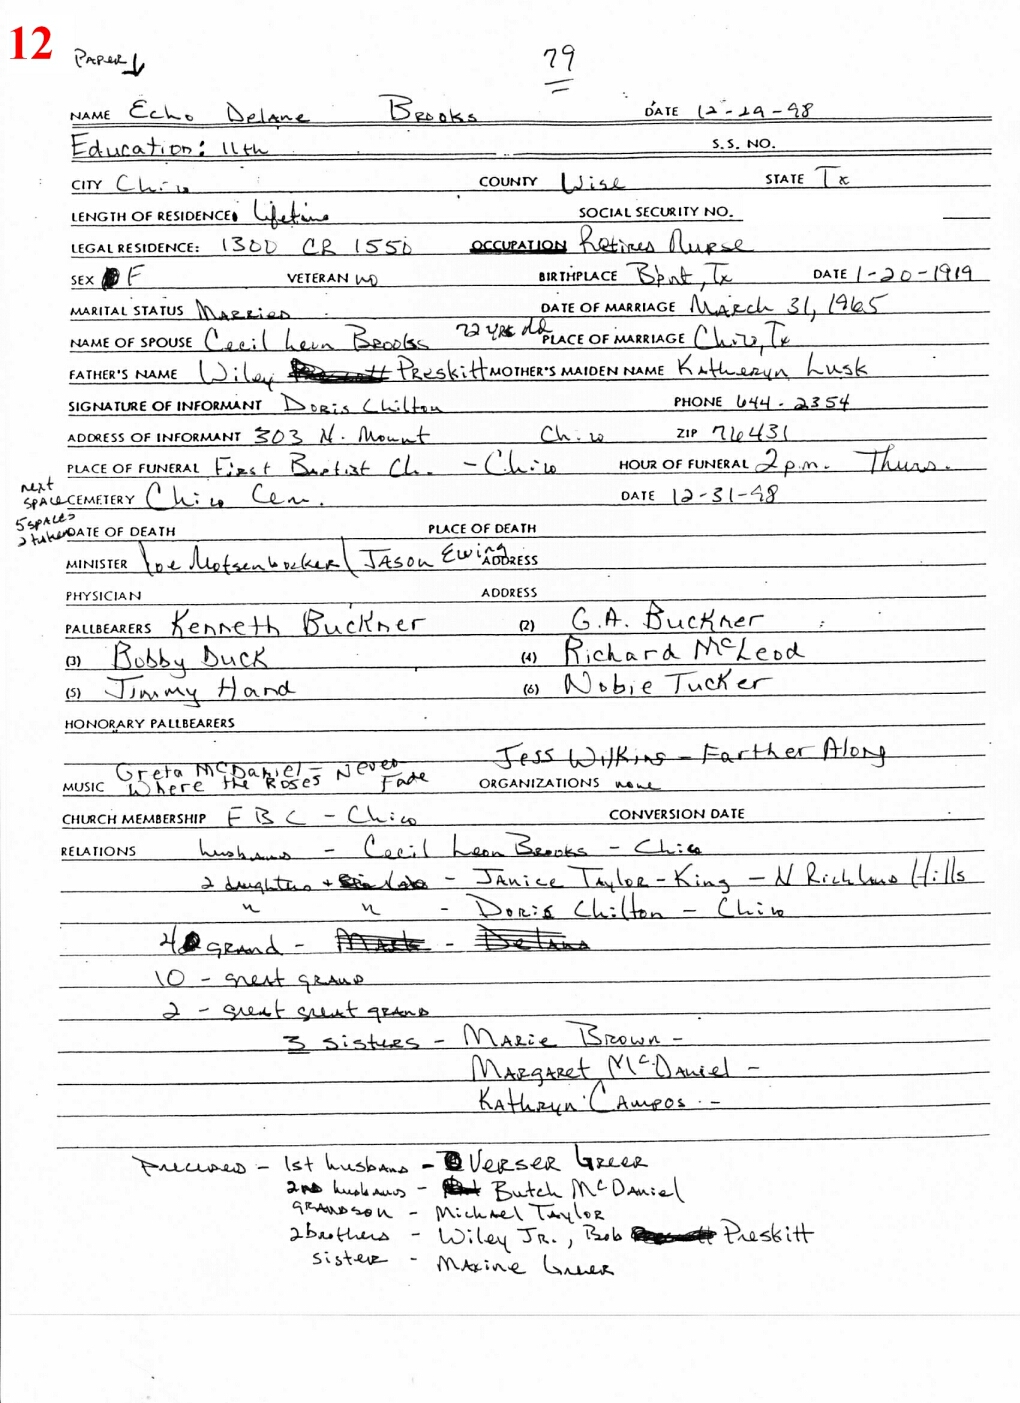 12
PAPER
79
NAME Echo Delane Brooks DATE 12-29-98
Education: 11th S.S. NO.
CITY Chico COUNTY Wise STATE Tx
LENGTH OF RESIDENCE: Lifetime SOCIAL SECURITY NO.
LEGAL RESIDENCE: 1300 CR 1550 OCCUPATION Retired Nurse
SEX F VETERAN no BIRTHPLACE Bpnt, Tx DATE 1-20-1919
MARITAL STATUS Married DATE OF MARRIAGE March 31, 1965
NAME OF SPOUSE Cecil Leon Brooks 72 yrs old PLACE OF MARRIAGE Chico, Tx
FATHER'S NAME Wiley Preskitt MOTHER'S MAIDEN NAME Katheryn Lusk
SIGNATURE OF INFORMANT Doris Chilton PHONE 644-2354
ADDRESS OF INFORMANT 303 N. Mount Chico ZIP 76431
PLACE OF FUNERAL First Baptist Ch. - Chico HOUR OF FUNERAL 2 p.m. Thurs.
next
space CEMETERY Chico Cem. DATE 12-31-98
5 spaces
2 taken DATE OF DEATH PLACE OF DEATH
MINISTER Joe Motsenbocker / Jason Ewing ADDRESS
PHYSICIAN ADDRESS
PALLBEARERS Kenneth Buckner (2) G.A. Buckner
(3) Bobby Duck (4) Richard McLeod
(5) Jimmy Hand (6) Nobie Tucker
HONORARY PALLBEARERS
Jess Wilkins - Farther Along
Greta McDaniel - Never
MUSIC Where the Roses Fade ORGANIZATIONS none
CHURCH MEMBERSHIP FBC - Chico CONVERSION DATE
RELATIONS husband - Cecil Leon Brooks - Chico
2 daughters + - Janice Taylor-King - N Richland Hills
" " - Doris Chilton - Chico
4 grand - Mark - Delana
10 - great grand
2 - great great grand
3 sisters - Marie Brown -
Margaret McDaniel -
Kathryn Campos -
Preceded - 1st husband - Verser Greer
2nd husband - Butch McDaniel
grandson - Michael Taylor
2 brothers - Wiley Jr., Bob Preskitt
sister - Maxine Greer